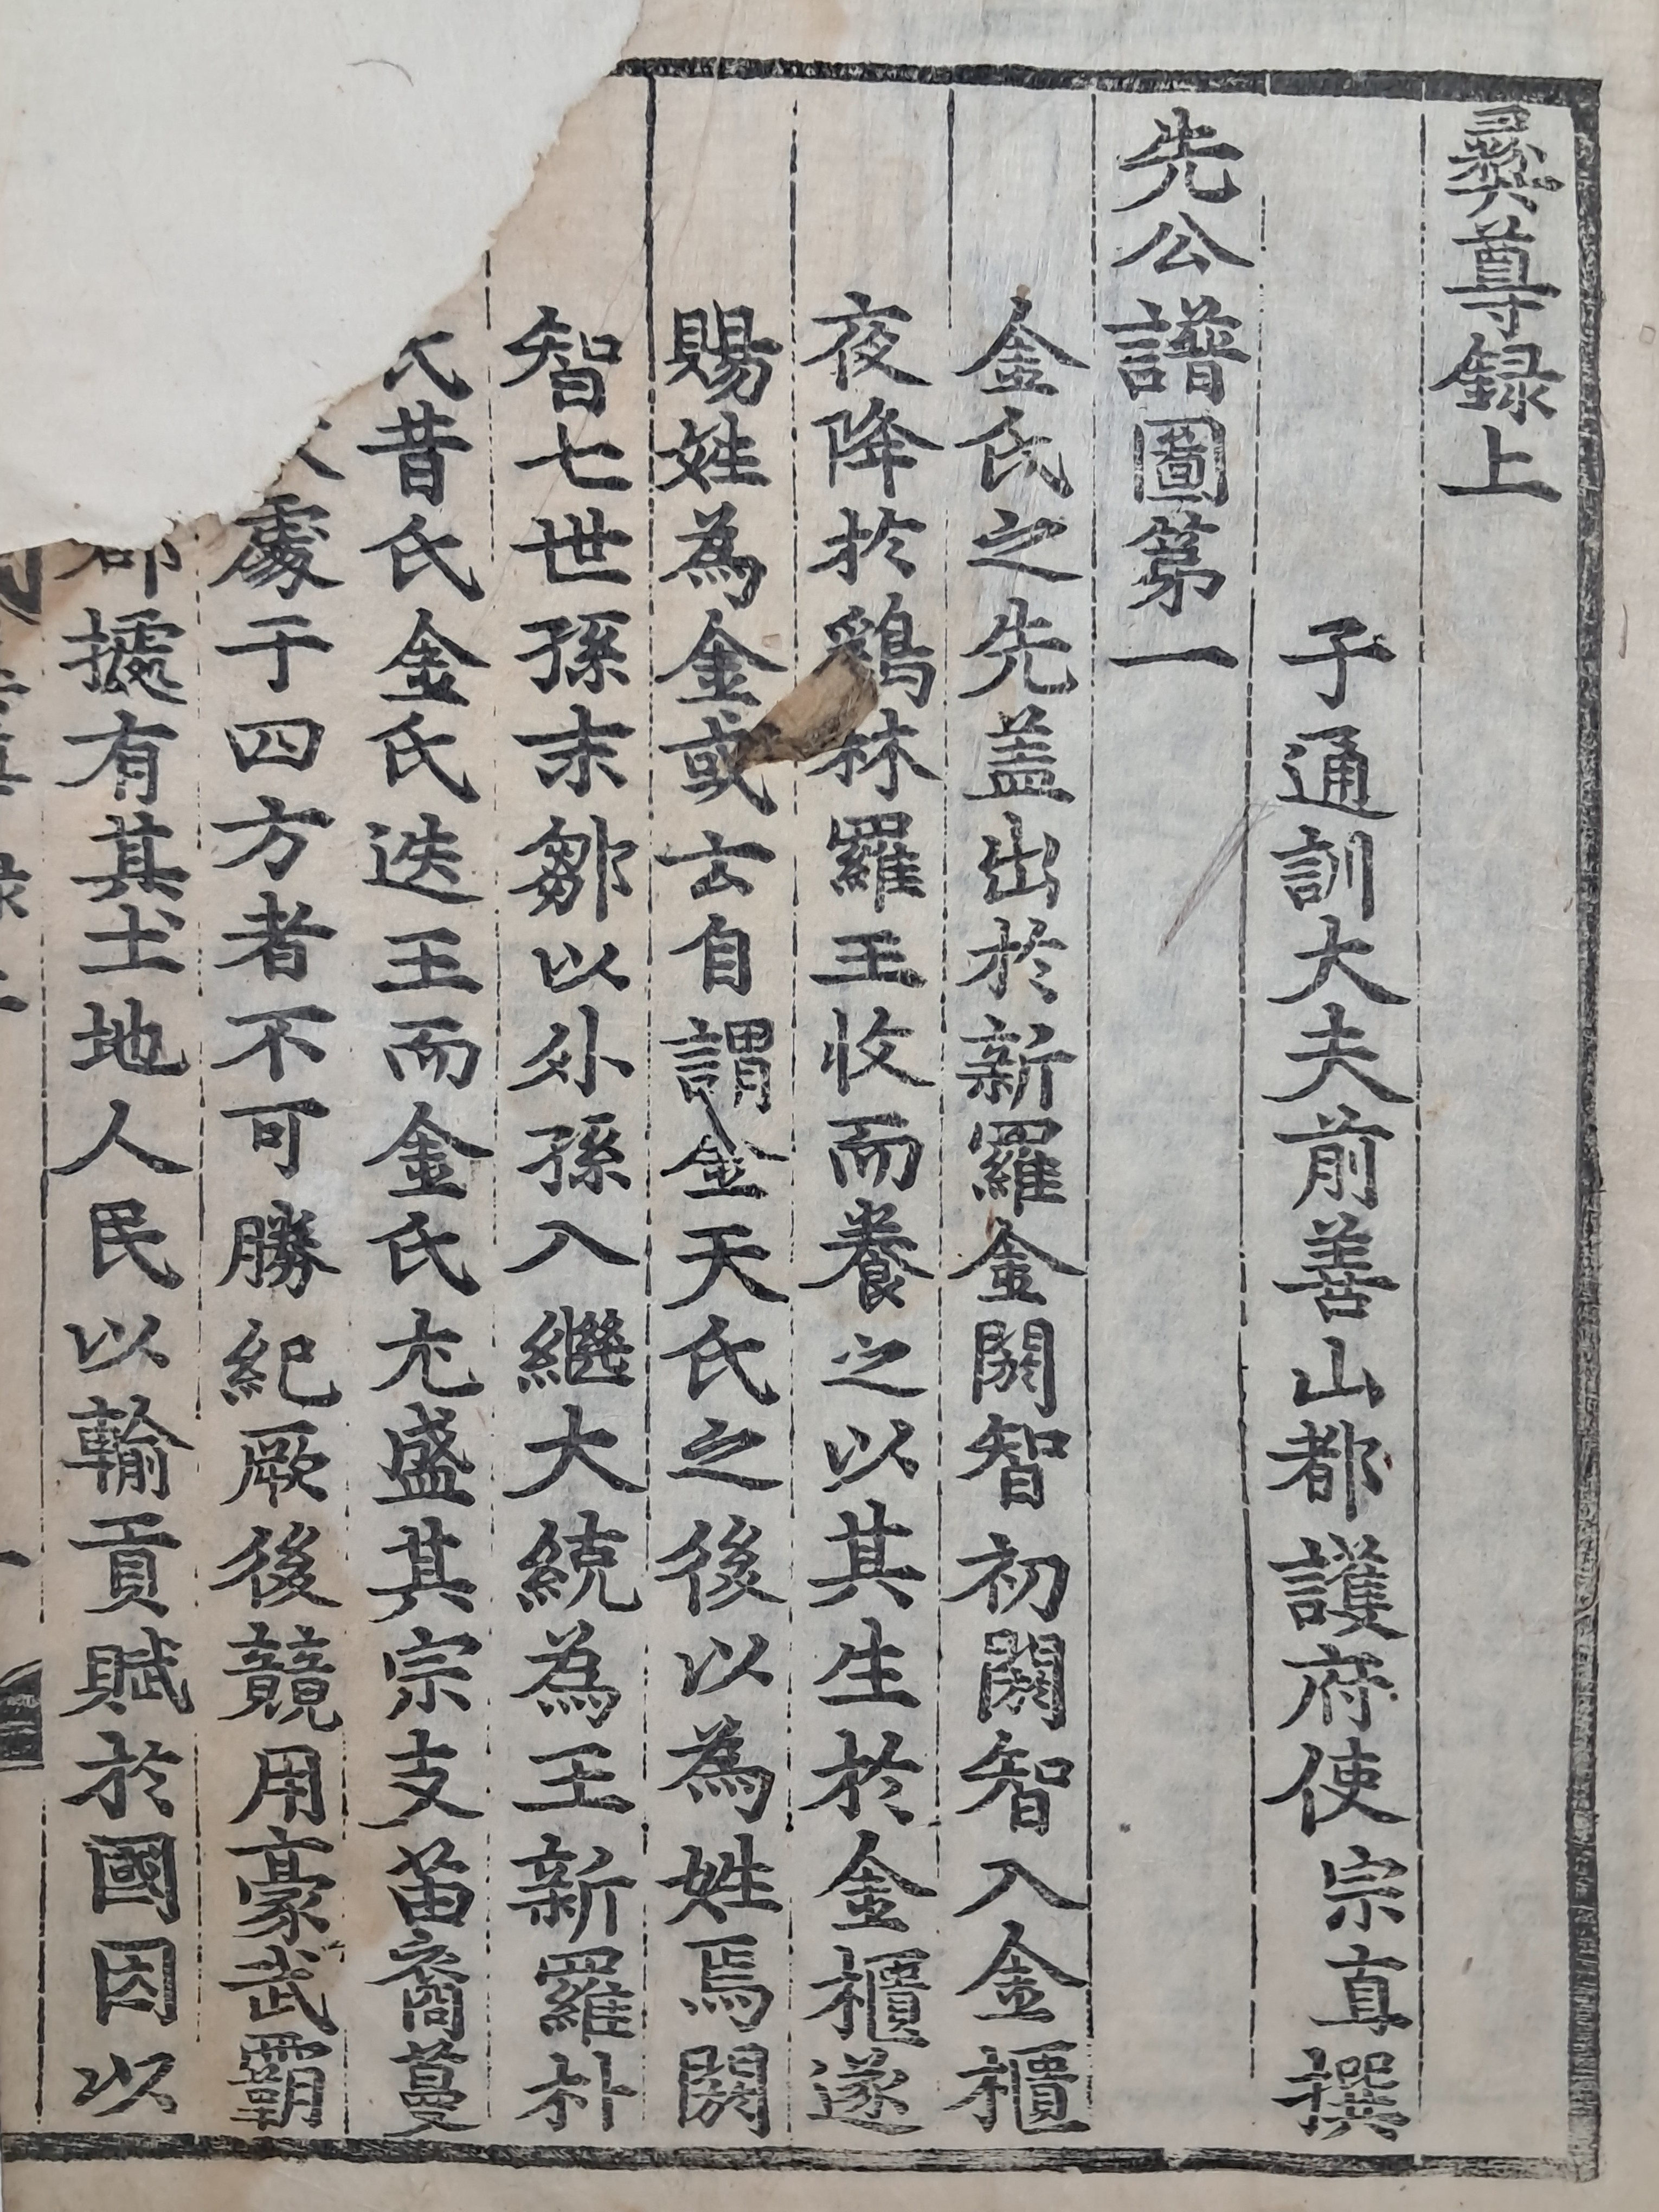 彛尊録上
子通訓大夫前善山都護府使宗直撰
先公譜圖第一
金氏之先盖出於新羅金閼智初閼智入金樻
夜降於鷄林羅王收而養之以其生於金樻遂
賜姓為金或云自謂金天氏之後以為姓焉閼
智七世孫末鄒以外孫入継大統為王新羅朴
氏昔氏金氏迭王而金氏尤盛其宗支苗裔蔓
處于四方者不可勝紀厥後競用豪武覇
郡據有其土地人民以輸貢賦於國因以